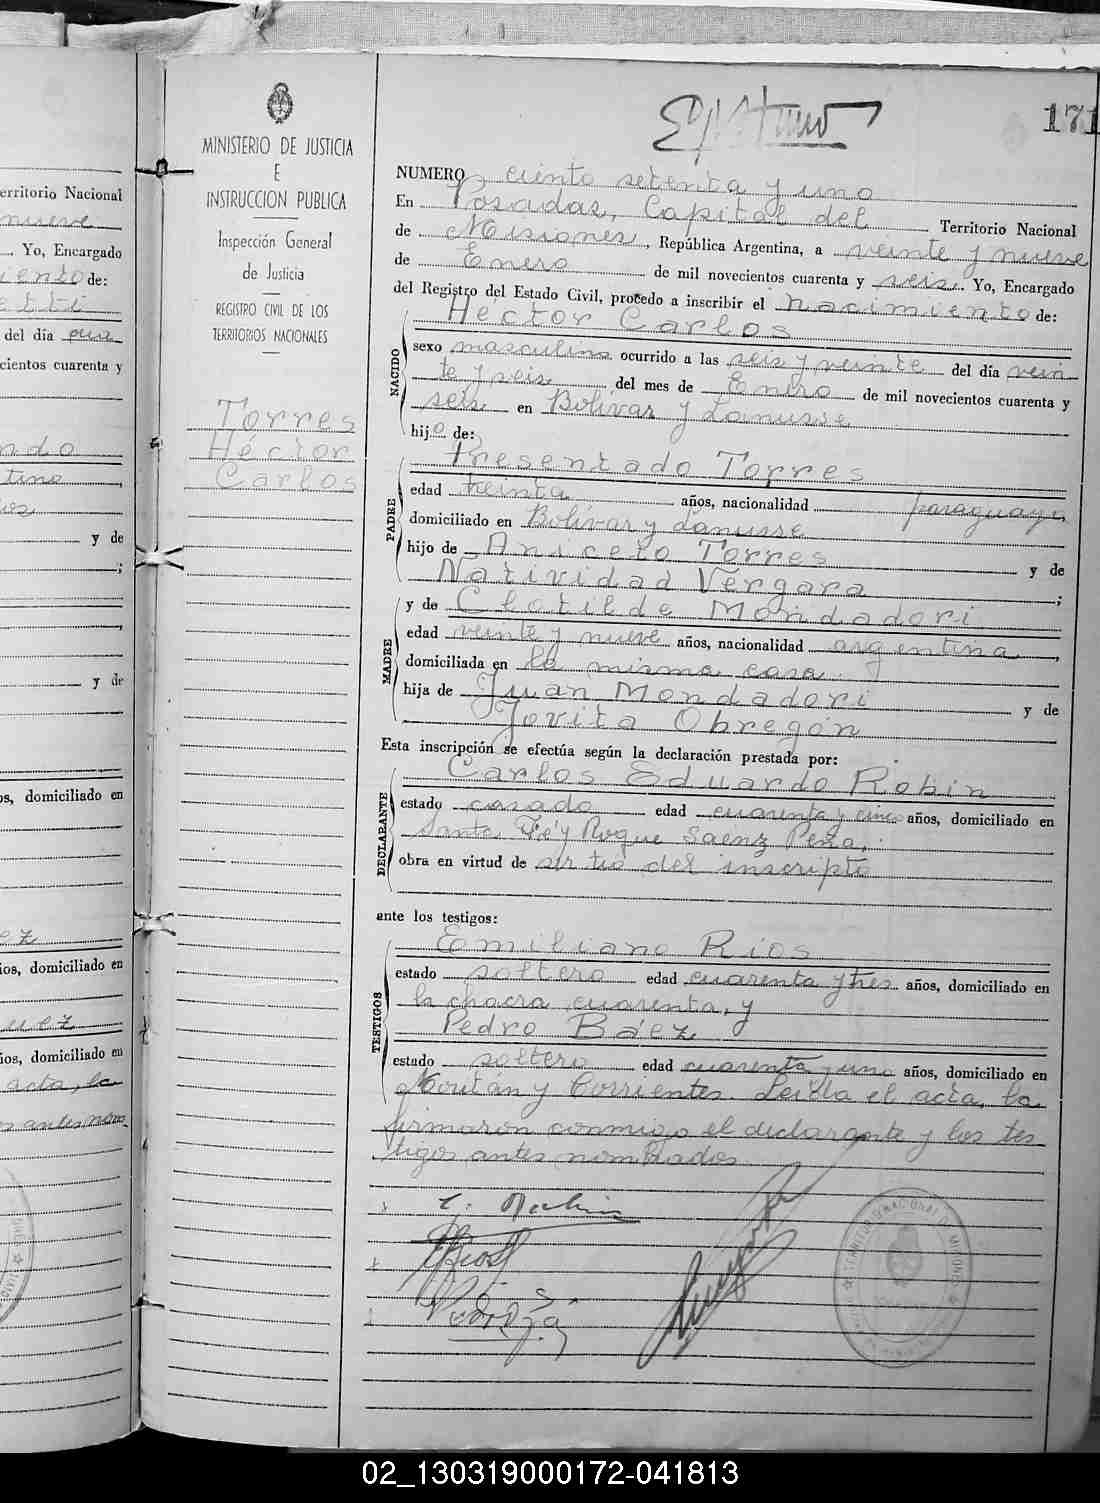 erritorio Nacional
nueve
Yo, Encargado
de:
del día
cientos cuarenta y
ndo
tina
y de
;
y de
os, domiciliado en
ez
ios, domiciliado en
uez
ños, domiciliado en
acta, la
s antes nom
MINISTERIO DE JUSTICIA
E
INSTRUCCION PUBLICA
Inspección General
de Justicia
REGISTRO CIVIL DE LOS
TERRITORIOS NACIONALES
Torres
Héctor
Carlos
171
NUMERO ciento setenta y uno
En Posadas, Capital del Territorio Nacional
de Misiones, República Argentina, a veinte y nueve
de Enero de mil novecientos cuarenta y seis. Yo, Encargado
del Registro del Estado Civil, procedo a inscribir el nacimiento de:
NACIDO
Héctor Carlos
sexo masculino ocurrido a las seis y veinte del día vein
te y seis del mes de Enero de mil novecientos cuarenta y
seis en Bolívar y Lanusse
hijo de:
PADRE
Presentado Torres
edad treinta años, nacionalidad paraguaya
domiciliado en Bolívar y Lanusse
hijo de Aniceto Torres y de
Natividad Vergara ;
MADRE
y de Clotilde Mondadori
edad veinte y nueve años, nacionalidad argentina,
domiciliada en la misma casa.
hija de Juan Mondadori y de
Jovita Obregón
Esta inscripción se efectúa según la declaración prestada por:
DECLARANTE
Carlos Eduardo Robin
estado casado edad cuarenta y cinco años, domiciliado en
Santa Fé y Roque Saenz Peña,
obra en virtud de ser tío del inscripto
ante los testigos:
TESTIGOS
Emiliano Ríos
estado soltero edad cuarenta y tres años, domiciliado en
la chacra cuarenta, y
Pedro Báez
estado soltero edad cuarenta y uno años, domiciliado en
y Corrientes. Leída el acta, la
firmaron conmigo el declarante y los tes
tigos antes nombrados.
02_130319000172-041813